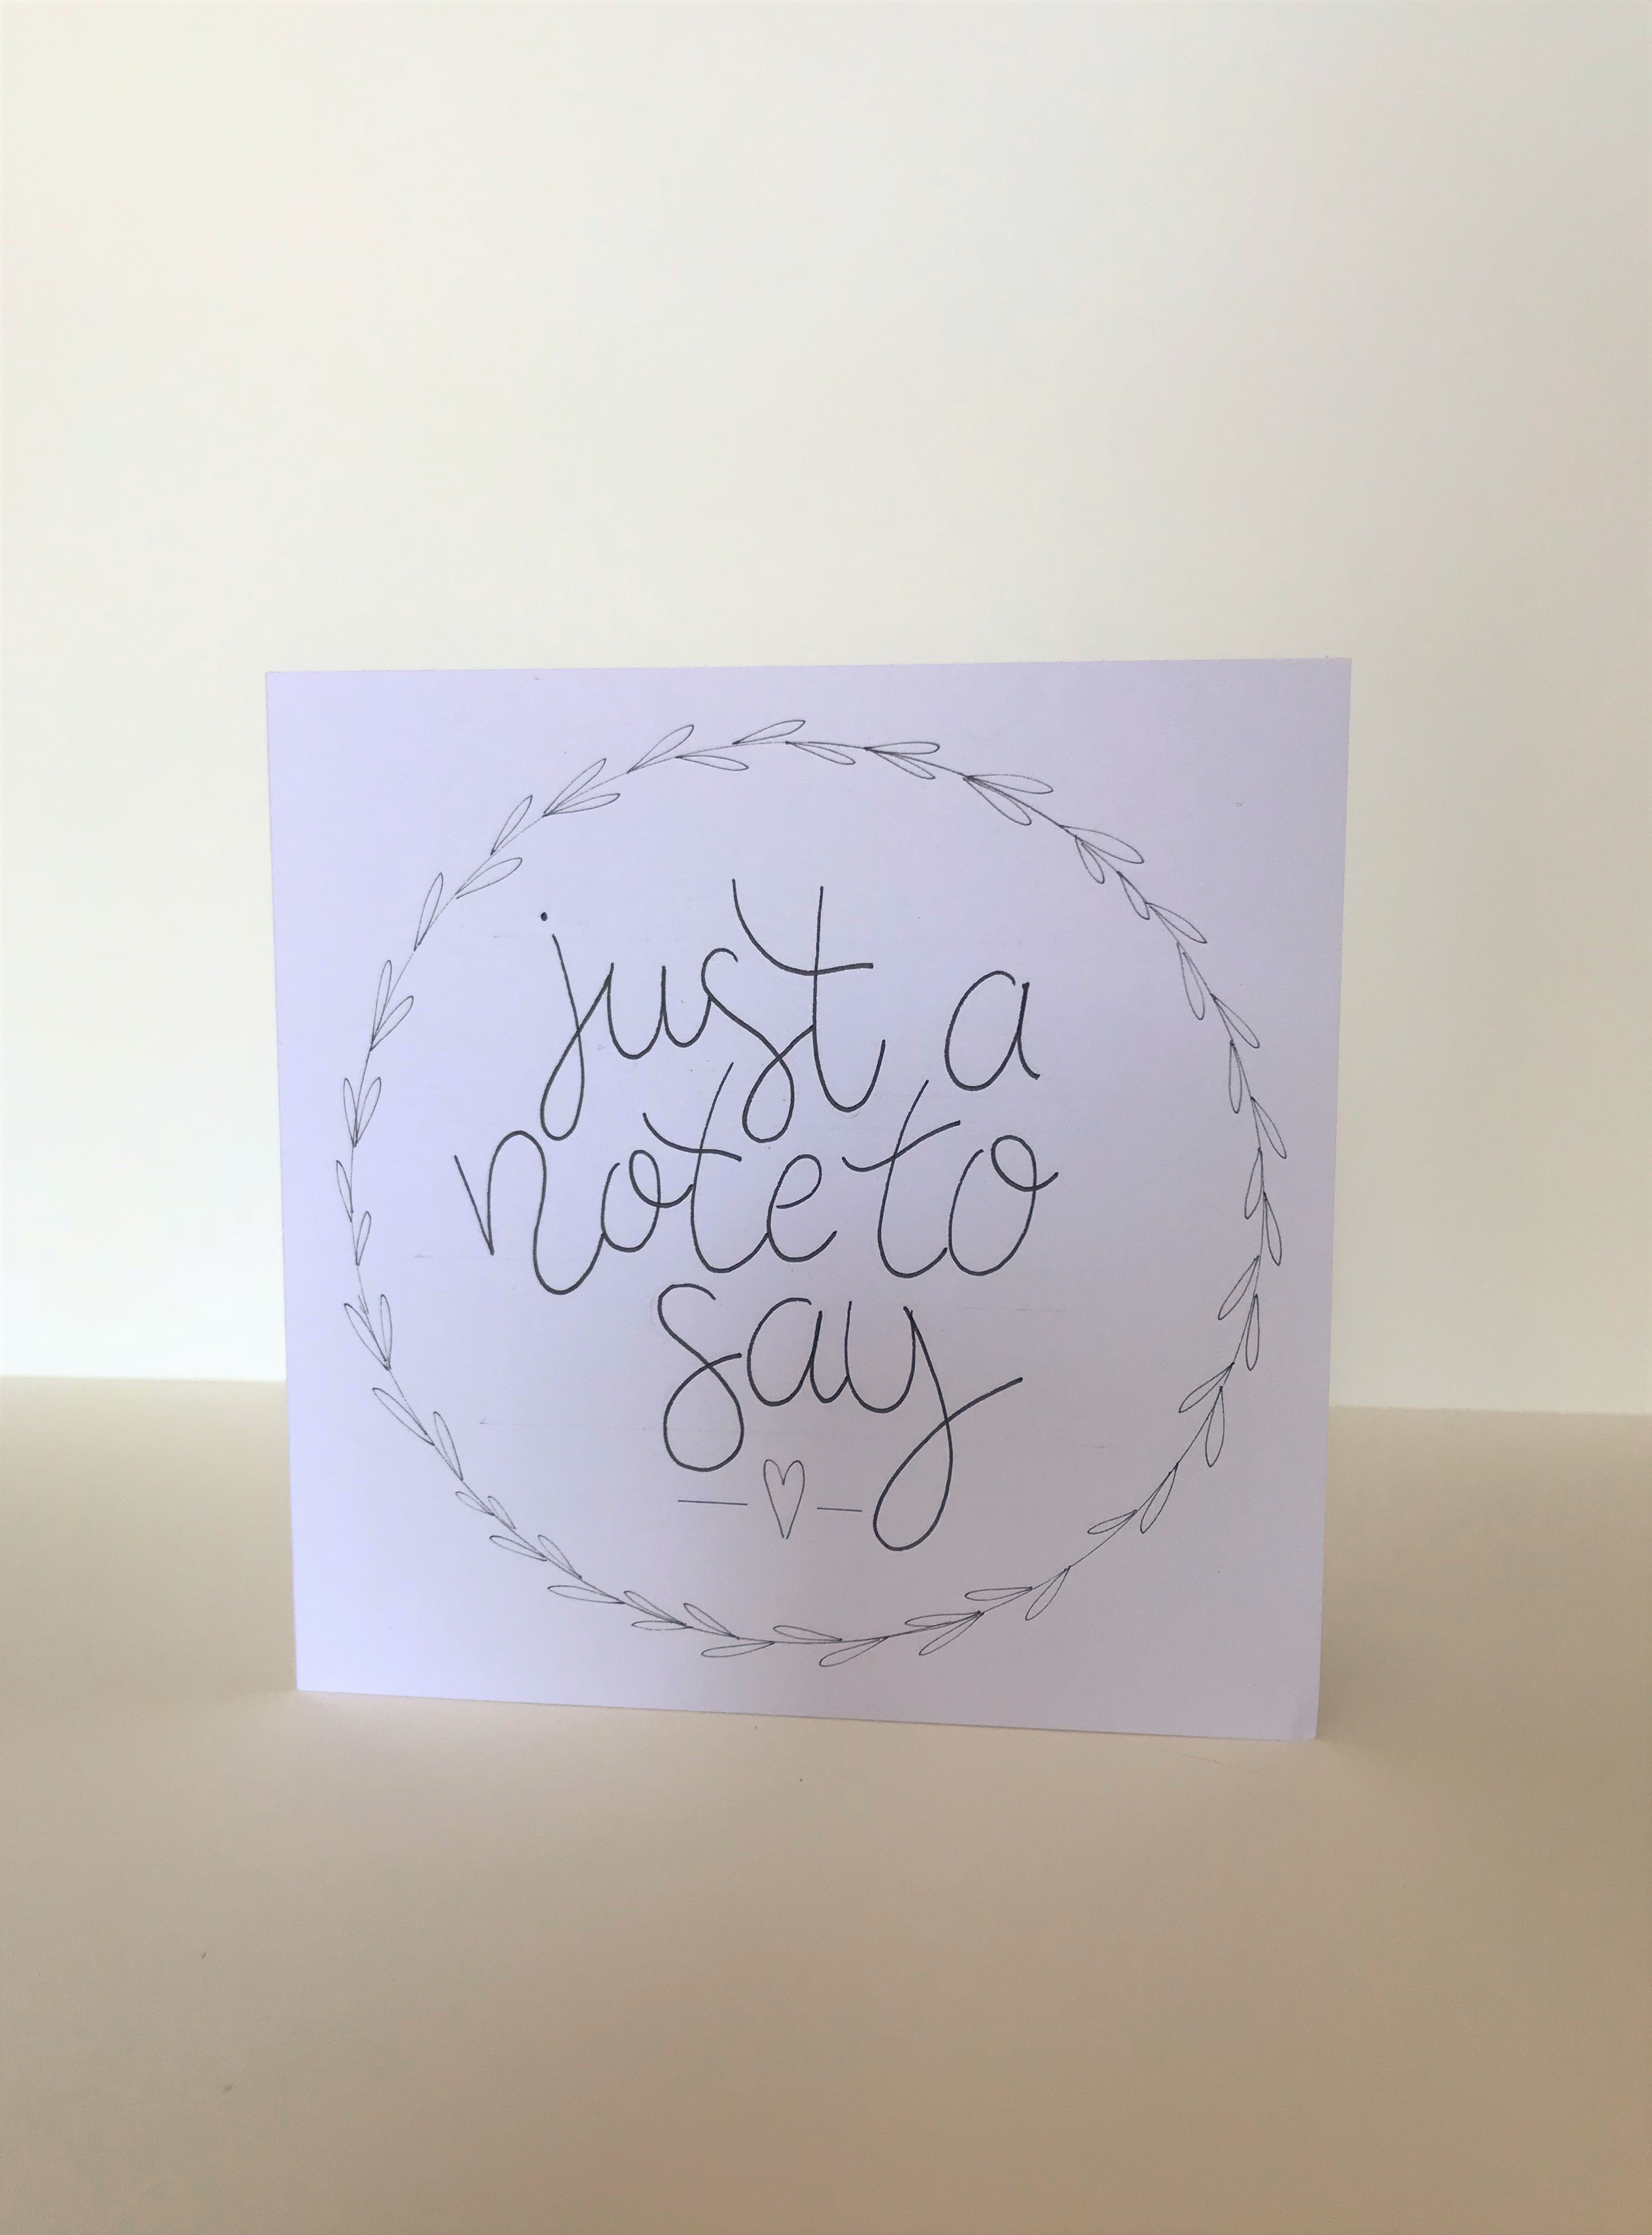 just a
note to
say